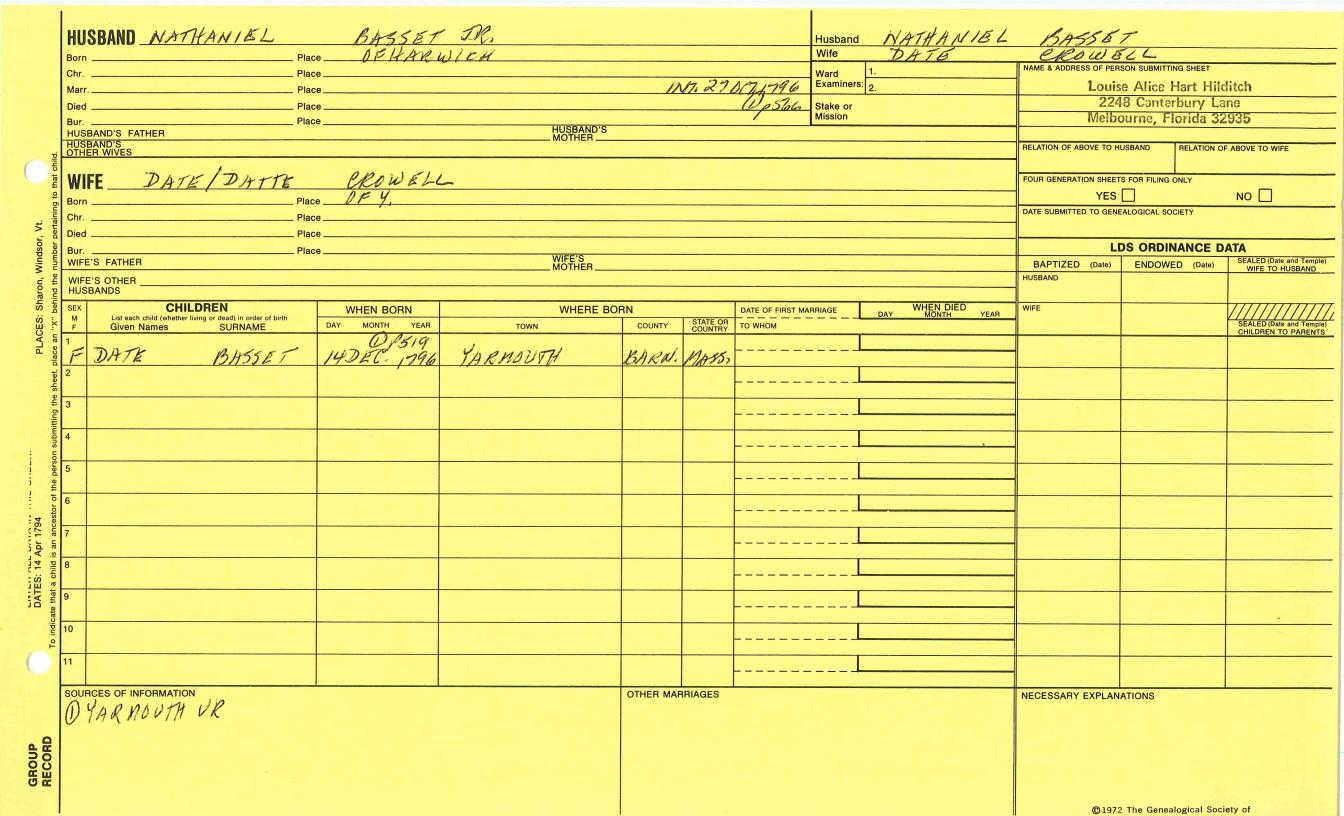 HUSBAND NATHANIEL BASSET JR.
Born Place OF HARWICH
Chr. Place
Marr. Place INT. 27 OCT 1796
Died Place ① p566
Bur. Place
HUSBAND'S FATHER HUSBAND'S MOTHER
HUSBAND'S OTHER WIVES
Husband NATHANIEL BASSET
Wife DATE CROWELL
Ward Examiners: 1.
2.
Stake or Mission
NAME & ADDRESS OF PERSON SUBMITTING SHEET
Louise Alice Hart Hilditch
2248 Canterbury Lane
Melbourne, Florida 32935
RELATION OF ABOVE TO HUSBAND RELATION OF ABOVE TO WIFE
FOUR GENERATION SHEETS FOR FILING ONLY
YES NO
DATE SUBMITTED TO GENEALOGICAL SOCIETY
WIFE DATE/DATTE CROWELL
Born Place OF Y.
Chr. Place
Died Place
Bur. Place
WIFE'S FATHER WIFE'S MOTHER
WIFE'S OTHER HUSBANDS
LDS ORDINANCE DATA
BAPTIZED (Date) ENDOWED (Date) SEALED (Date and Temple) WIFE TO HUSBAND
HUSBAND
WIFE
SEALED (Date and Temple) CHILDREN TO PARENTS
SEX M F
CHILDREN
List each child (whether living or dead) in order of birth
Given Names SURNAME
WHEN BORN
DAY MONTH YEAR
WHERE BORN
TOWN COUNTY STATE OR COUNTRY
DATE OF FIRST MARRIAGE
TO WHOM
WHEN DIED
DAY MONTH YEAR
1 ① P519
F DATE BASSET 14 DEC. 1796 YARMOUTH BARN. MASS.
2
3
4
5
6
7
8
9
10
11
SOURCES OF INFORMATION
① YARMOUTH VR
OTHER MARRIAGES
NECESSARY EXPLANATIONS
©1972 The Genealogical Society of
PLACES: Sharon, Windsor, Vt.
DATES: 14 Apr 1794
To indicate that a child is an ancestor of the person submitting the sheet, place an "X" behind the number pertaining to that child.
GROUP
RECORD